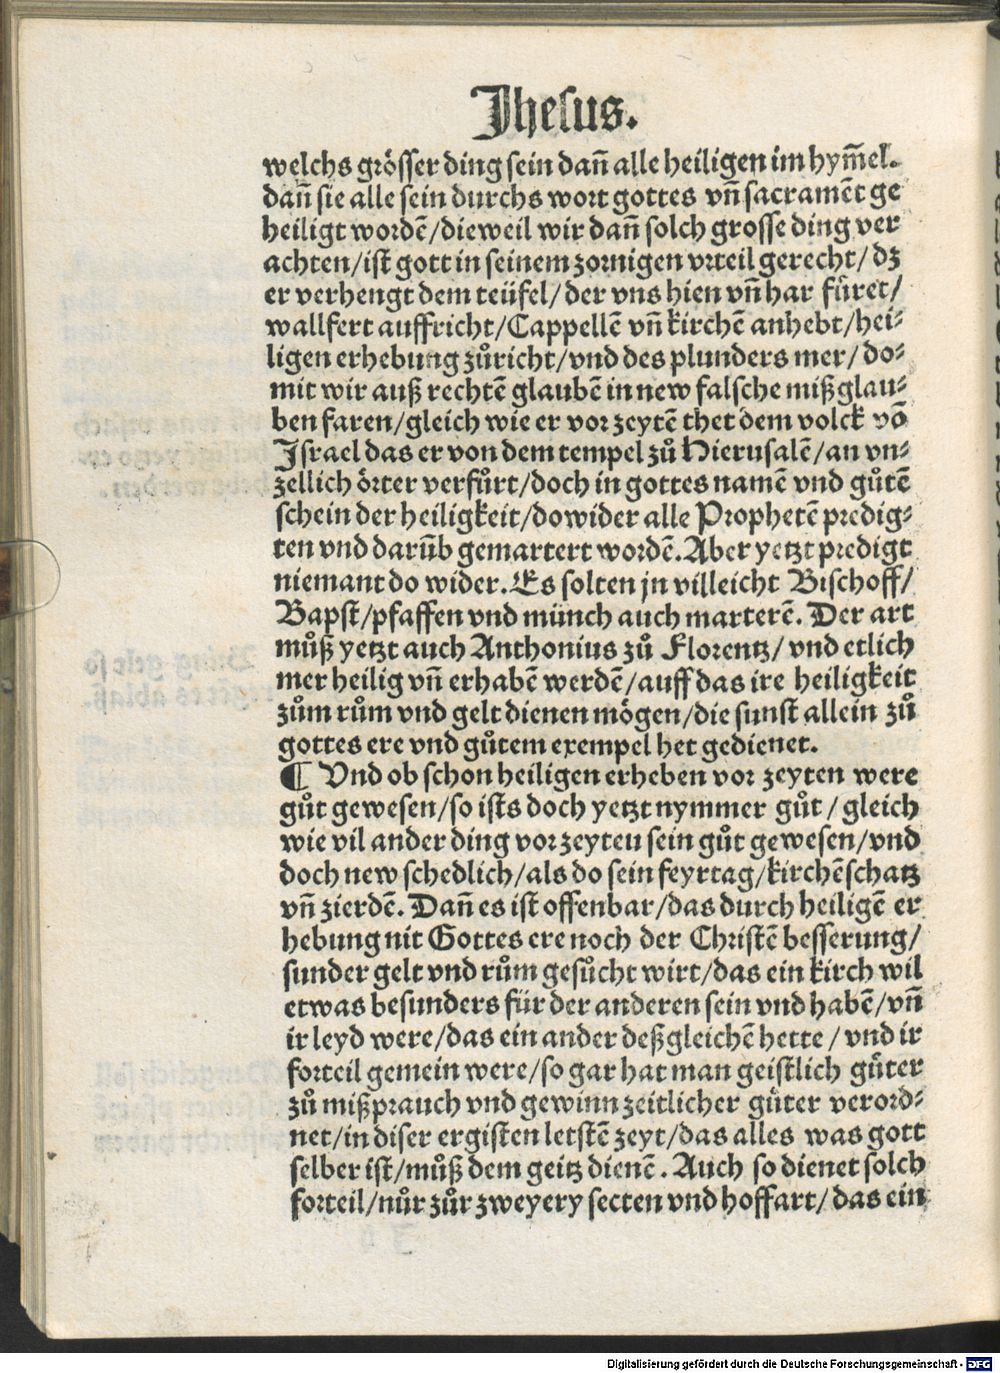 Jhesus.
welchs grösser ding sein dañ alle heiligen im hym̃el.
dañ sie alle sein durchs wort gottes vñ sacramẽt ge
heiligt wordẽ/dieweil wir dañ solch grosse ding ver
achten/ist gott in seinem zornigen vrteil gerecht/ dz
er verhengt dem teüfel/der vns hien vñ har füret/
wallfert auffricht/Cappellẽ vñ kirchẽ anhebt/hei⸗
ligen erhebung zůricht/vnd des plunders mer/ do⸗
mit wir auß rechtẽ glaubẽ in new falsche mißglau⸗
ben faren/gleich wie er vor zeytẽ thet dem volck võ
Israel das er von dem tempel zů Hierusalẽ/an vn⸗
zellich örter verfůrt/doch in gottes namẽ vnd gůtẽ
schein der heiligkeit/dowider alle Prophetẽ predig⸗
ten vnd darũb gemartert wordẽ. Aber yetzt predigt
niemant do wider. Es solten jn villeicht Bischoff/
Bapst/pfaffen vnd münch auch marterẽ. Der art
můß yetzt auch Anthonius zů Florentz/vnd etlich
mer heilig vñ erhabẽ werdẽ/auff das ire heiligkeit
zům rům vnd gelt dienen mögen/die sunst allein zů
gottes ere vnd gůtem exempel het gedienet.
¶ Vnd ob schon heiligen erheben vor zeyten were
gůt gewesen/so ists doch yetzt nymmer gůt/gleich
wie vil ander ding vor zeyteu sein gůt gewesen/vnd
doch new schedlich/als do sein feyrtag/kirchẽschatz
vñ zierdẽ. Dañ es ist offenbar/das durch heiligẽ er
hebung nit Gottes ere noch der Christẽ besserung/
sunder gelt vnd rům gesůcht wirt/das ein kirch wil
etwas besunders für der anderen sein vnd habẽ/vñ
ir leyd were/das ein ander deßgleichẽ hette/vnd ir
forteil gemein were/so gar hat man geistlich gůter
zů mißprauch vnd gewinn zeitlicher gůter verord⸗
net/in diser ergisten letstẽ zeyt/das alles was gott
selber ist/můß dem geitz dienẽ. Auch so dienet solch
forteil/nůr zůr zweyery secten vnd hoffart/das ein
Digitalisierung gefördert durch die Deutsche Forschungsgemeinschaft - DFG